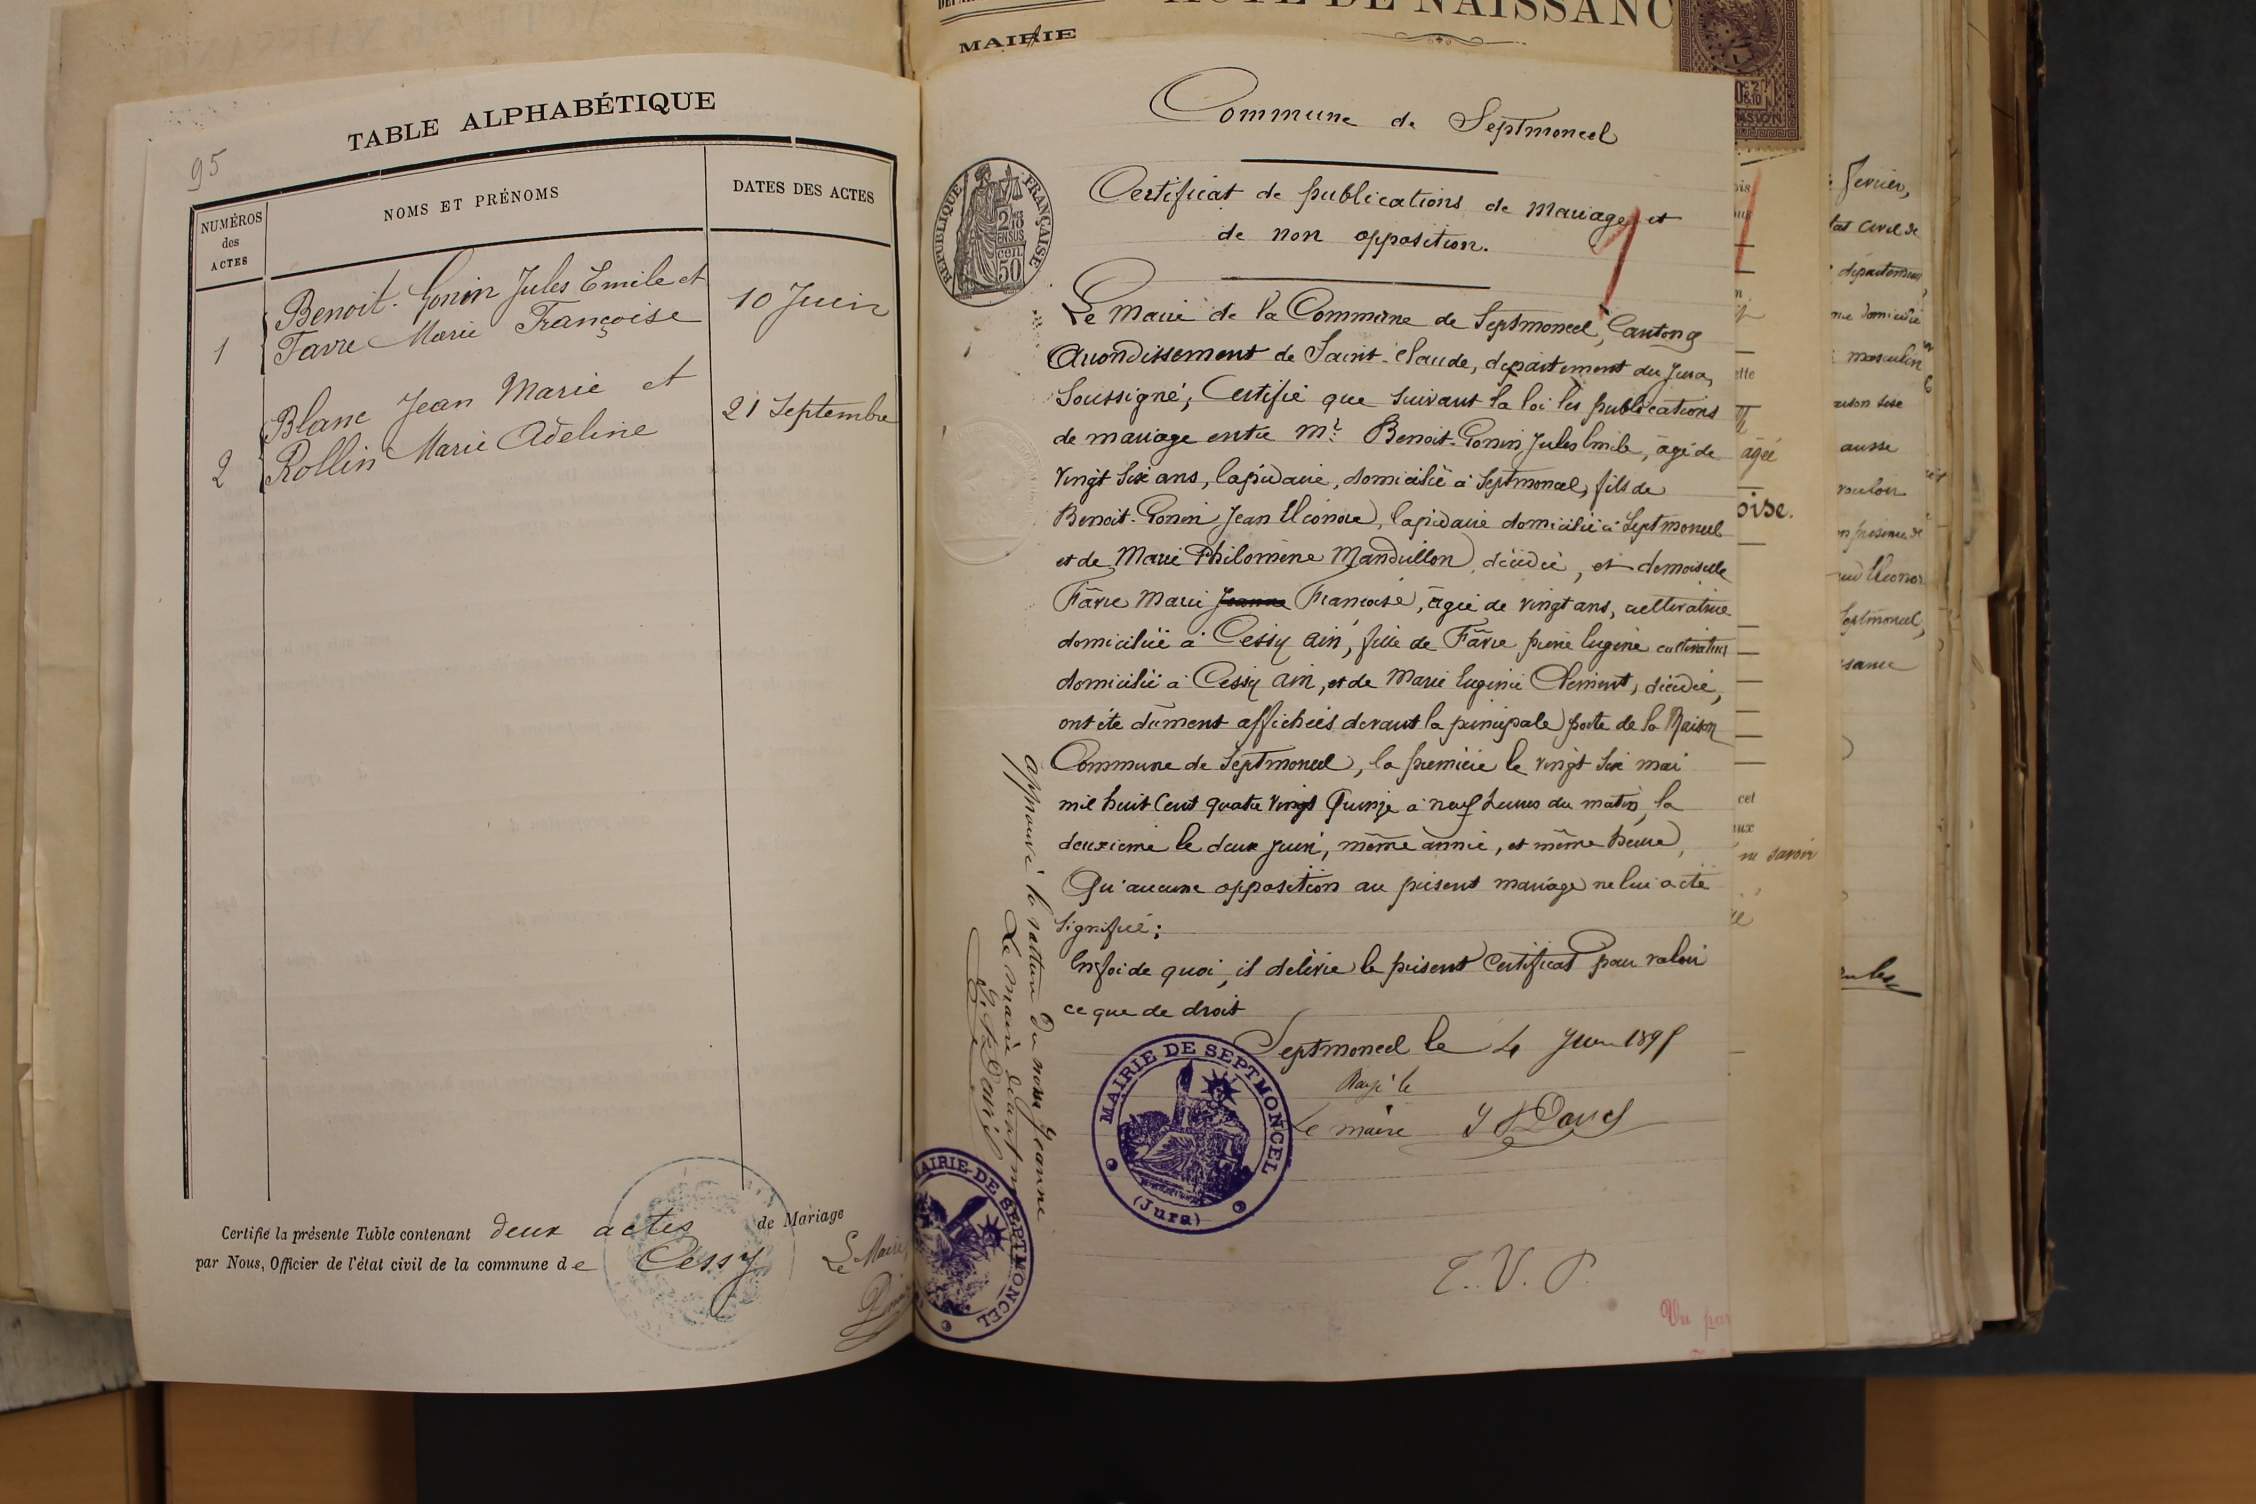 95
TABLE ALPHABÉTIQUE
NUMÉROS
des
ACTES
NOMS ET PRÉNOMS
DATES DES ACTES
1
Benoit-Gonin Jules Emile et
Favre Marie Françoise
10 Juin
2
Blanc Jean Marie et
Rollin Marie Adeline
21 Septembre
Certifié la présente Table contenant deux actes de Mariage
par Nous, Officier de l'état civil de la commune de Cessy
Le Maire,
MAIRIE
ACTE DE NAISSANC
Commune de Septmoncel
RÉPUBLIQUE FRANÇAISE
50
Certificat de publications de mariage et
de non opposition.
Le Maire de la Commune de Septmoncel, Canton &
Arrondissement de Saint-Claude, département du Jura,
Soussigné, Certifie que suivant la loi les publications
de mariage entre Mr Benoit-Gonin Jules Emile, âgé de
vingt six ans, lapidaire, domicilié à Septmoncel, fils de
Benoit-Gonin Jean Eléonore, lapidaire domicilié à Septmoncel
et de Marie Philomène Mandrillon, décédée, et demoiselle
Favre Marie Jeanne Françoise, âgée de vingt ans, cultivatrice
domiciliée à Cessy ain, fille de Favre pierre Eugène cultivateur
domicilié à Cessy ain, et de Marie Eugénie Clément, décédée,
ont été dûment affichées devant la principale porte de la Maison
Commune de Septmoncel, la première le vingt six mai
mil huit Cent quatre vingt Quinze à neuf heures du matin, la
deuxième le deux juin, même année, et même heure,
Qu'aucune opposition au présent mariage ne lui a été
signifiée;
En foi de quoi, il délivre le présent Certificat pour valoir
ce que de droit
Septmoncel le 4 Juin 1895
Le maire
approuvé la rature du nom Jeanne
Le maire
MAIRIE DE SEPTMONCEL
(Jura)
MAIRIE-DE SEPTMONCEL
T. V. P.
Vu par
âgée
oise.
cet
savoir
février,
état civil de
département
domicilié
masculin
vouloir
en présence de
Septmoncel,